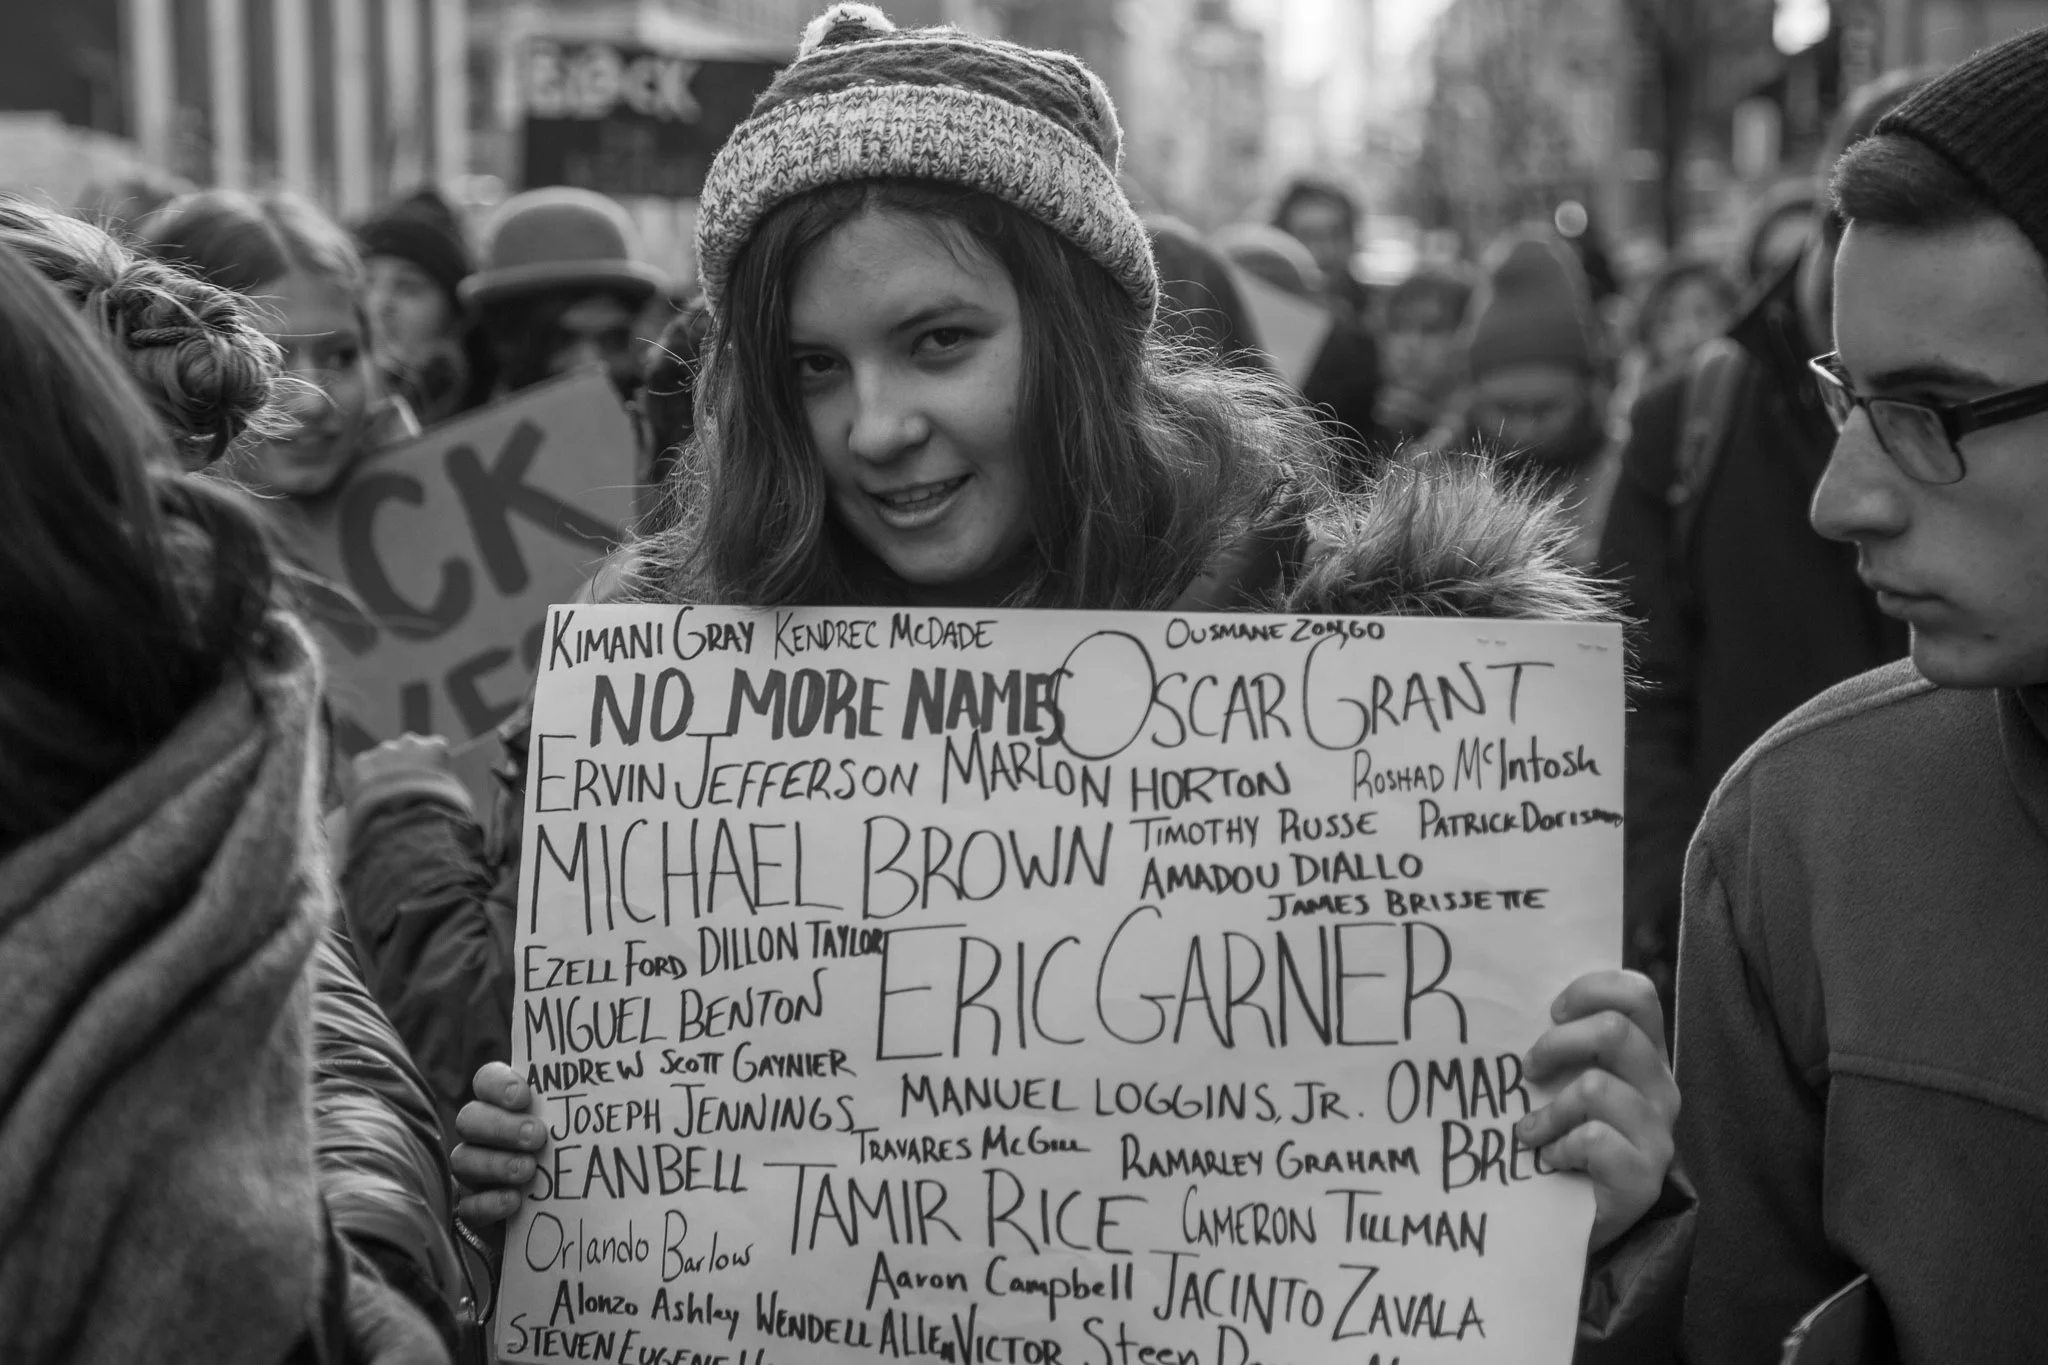 BLOCK
ACK
KIMANI GRAY KENDREC McDADE OUSMANE ZONGO
NO MORE NAMES OSCAR GRANT
ERVIN JEFFERSON MARLON HORTON ROSHAD McIntosh
MICHAEL BROWN TIMOTHY RUSSE PATRICK Dorismond
AMADOU DIALLO
JAMES BRISSETTE
EZELL FORD DILLON TAYLOR ERIC GARNER
MIGUEL BENTON
ANDREW SCOTT GAYNIER
JOSEPH JENNINGS MANUEL LOGGINS, JR. OMAR
SEAN BELL TRAVARES McGILL RAMARLEY GRAHAM BRE
TAMIR RICE CAMERON TILLMAN
Orlando Barlow
Aaron Campbell JACINTO ZAVALA
Alonzo Ashley WENDELL ALLEN VICTOR Steen
STEVEN EUGENE